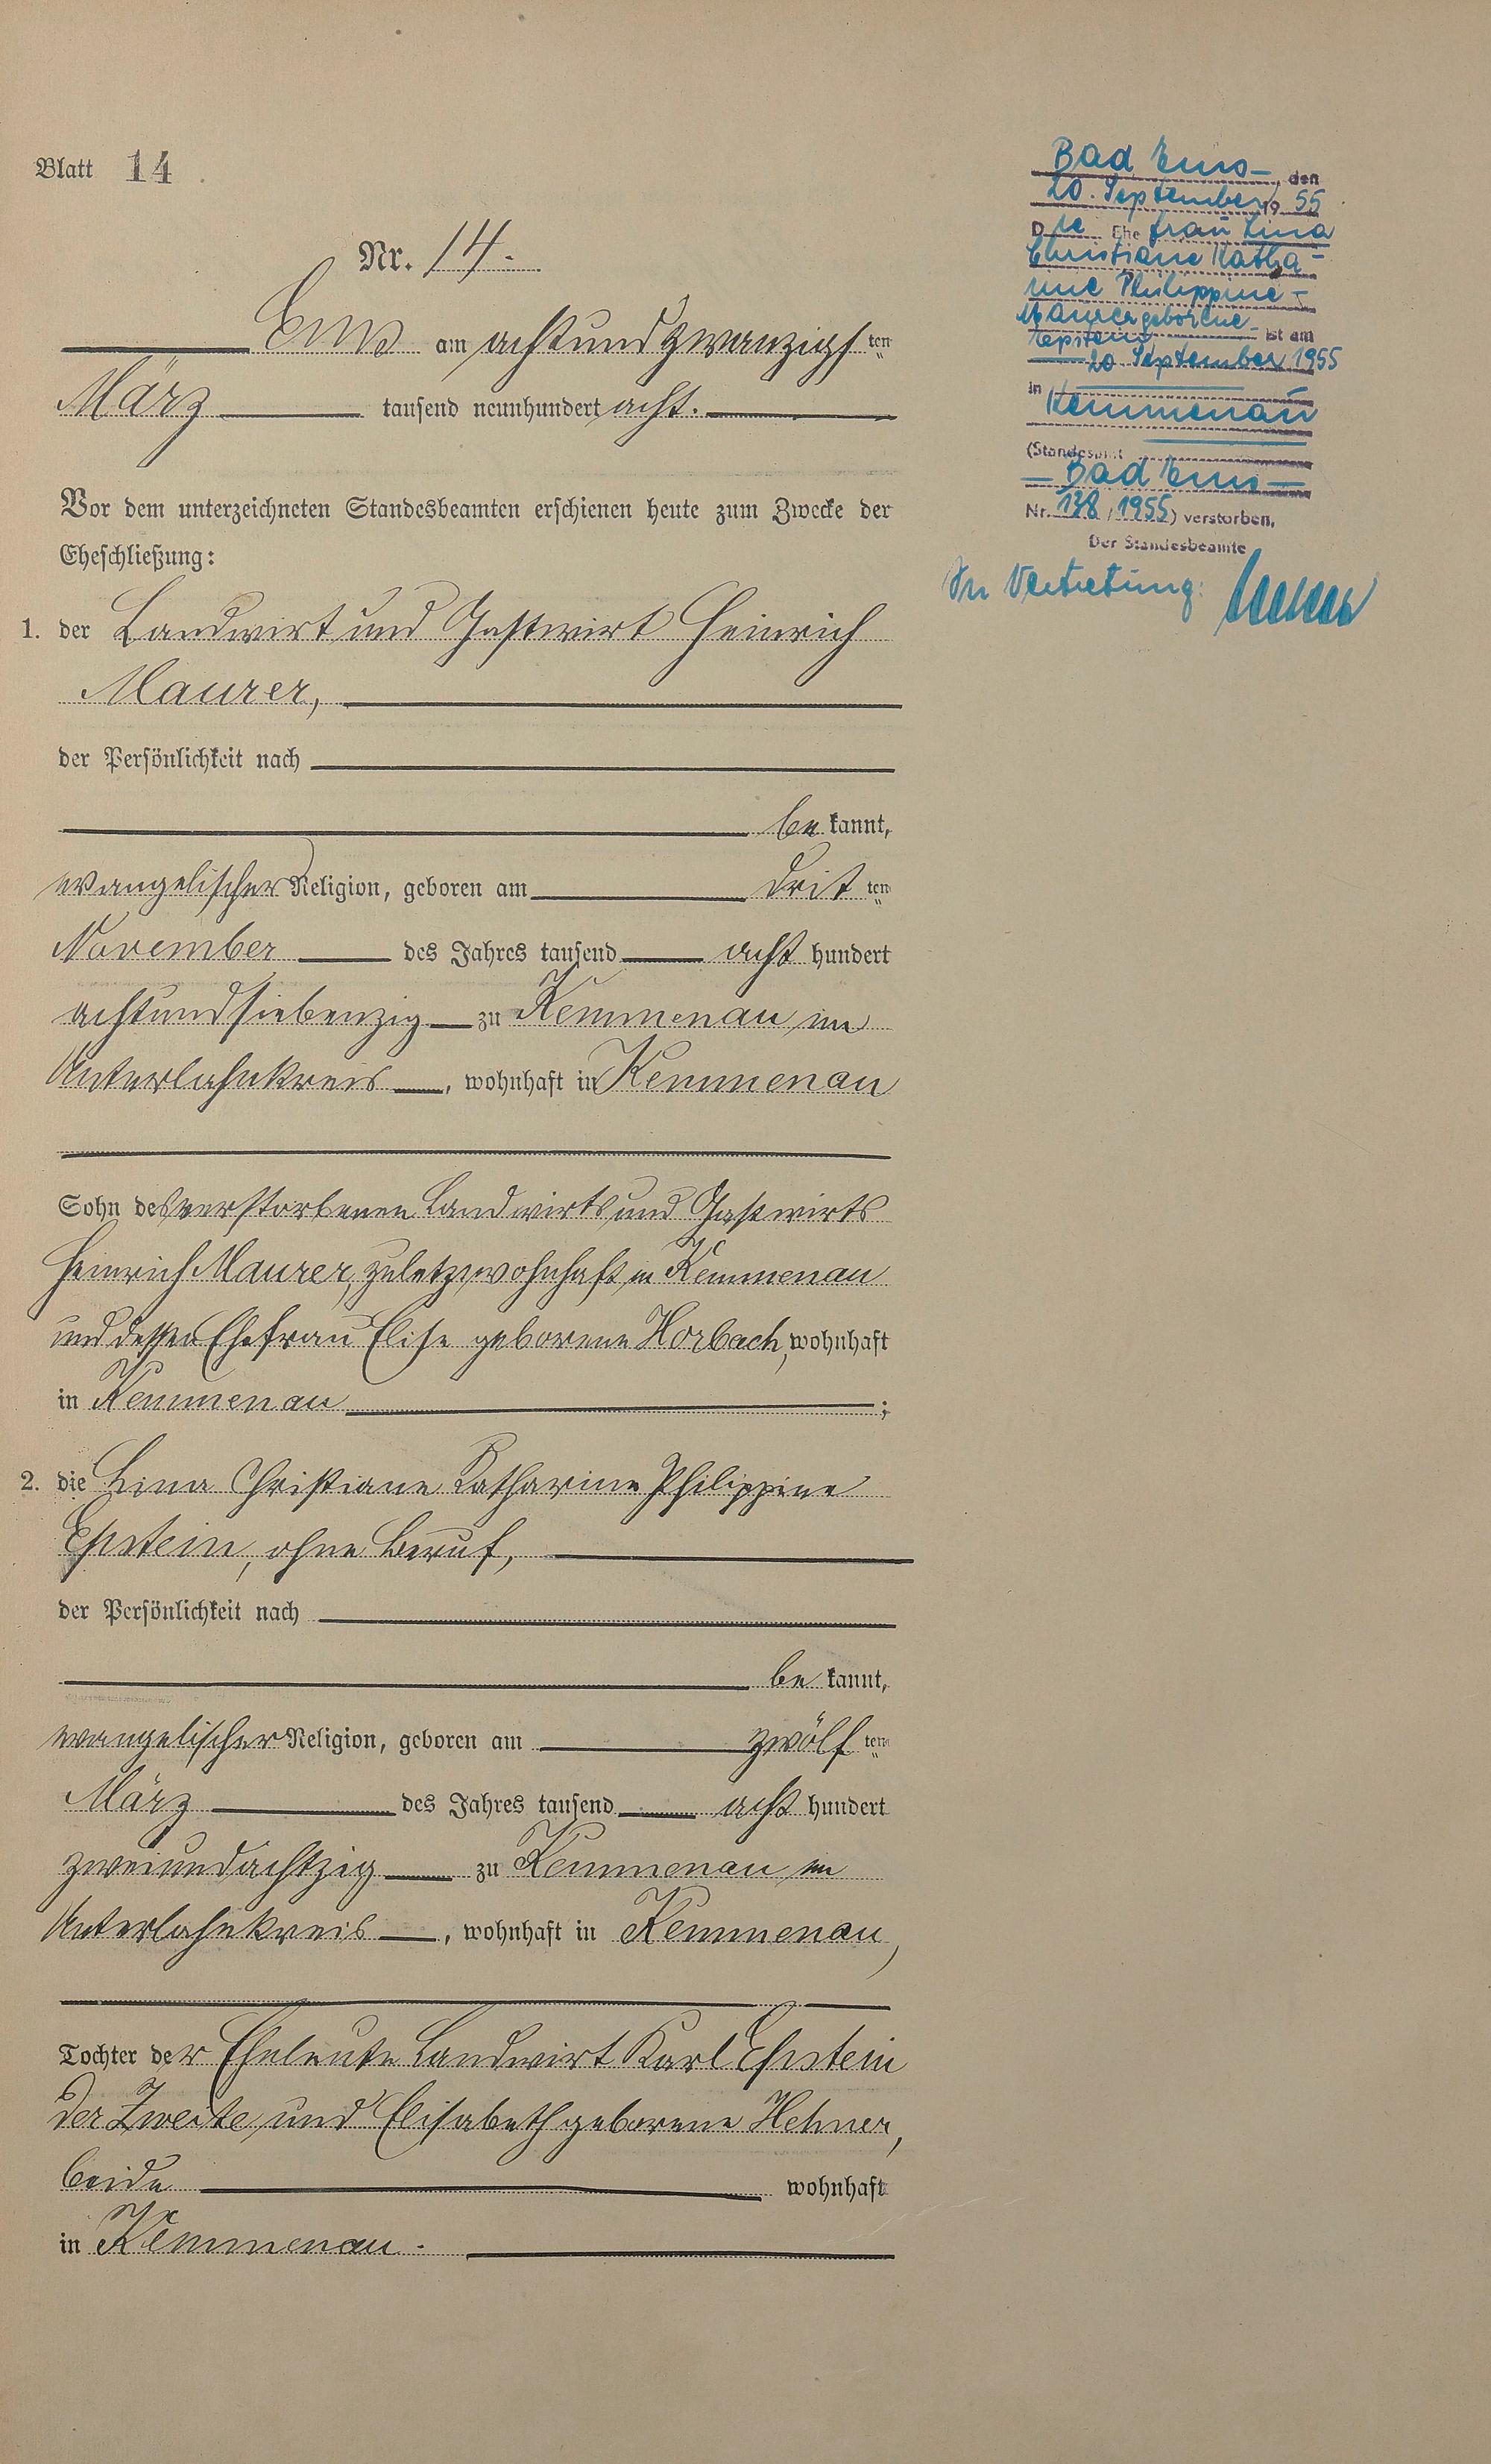 Blatt 14
Nr. 14.
Ems am achtundzwanzigsten
März tausend neunhundert acht.
Vor dem unterzeichneten Standesbeamten erschienen heute zum Zwecke der
Eheschließung:
1. der Landwirt und Gastwirt Heinrich
Maurer,
der Persönlichkeit nach
bekannt,
evangelischer Religion, geboren am dritten
November des Jahres tausend acht hundert
achtundsiebenzig zu Kemmenau im
Unterlahnkreis, wohnhaft in Kemmenau
Sohn des verstorbenen Landwirts und Gastwirts
Heinrich Maurer, zuletzt wohnhaft in Kemmenau
und dessen Ehefrau Elise geborene Horbach, wohnhaft
in Kemmenau;
2. die Lina Christiane Katharine Philippine
Epstein, ohne Beruf,
der Persönlichkeit nach
bekannt,
evangelischer Religion, geboren am zwölften
März des Jahres tausend acht hundert
zweiundachtzig zu Kemmenau im
Unterlahnkreis, wohnhaft in Kemmenau,
Tochter der Eheleute Landwirt Karl Epstein
der Zweite und Elisabeth geborene Hehner,
beide wohnhaft
in Kemmenau.
Bad Ems, den
20. September 1955
Die Ehefrau Lina
Christiane Katha-
rine Philippine
Maurer geborene
Epstein ist am
20. September 1955
in Kemmenau
(Standesamt
Bad Ems
Nr. 138 / 1955) verstorben,
Der Standesbeamte
In Vertretung: